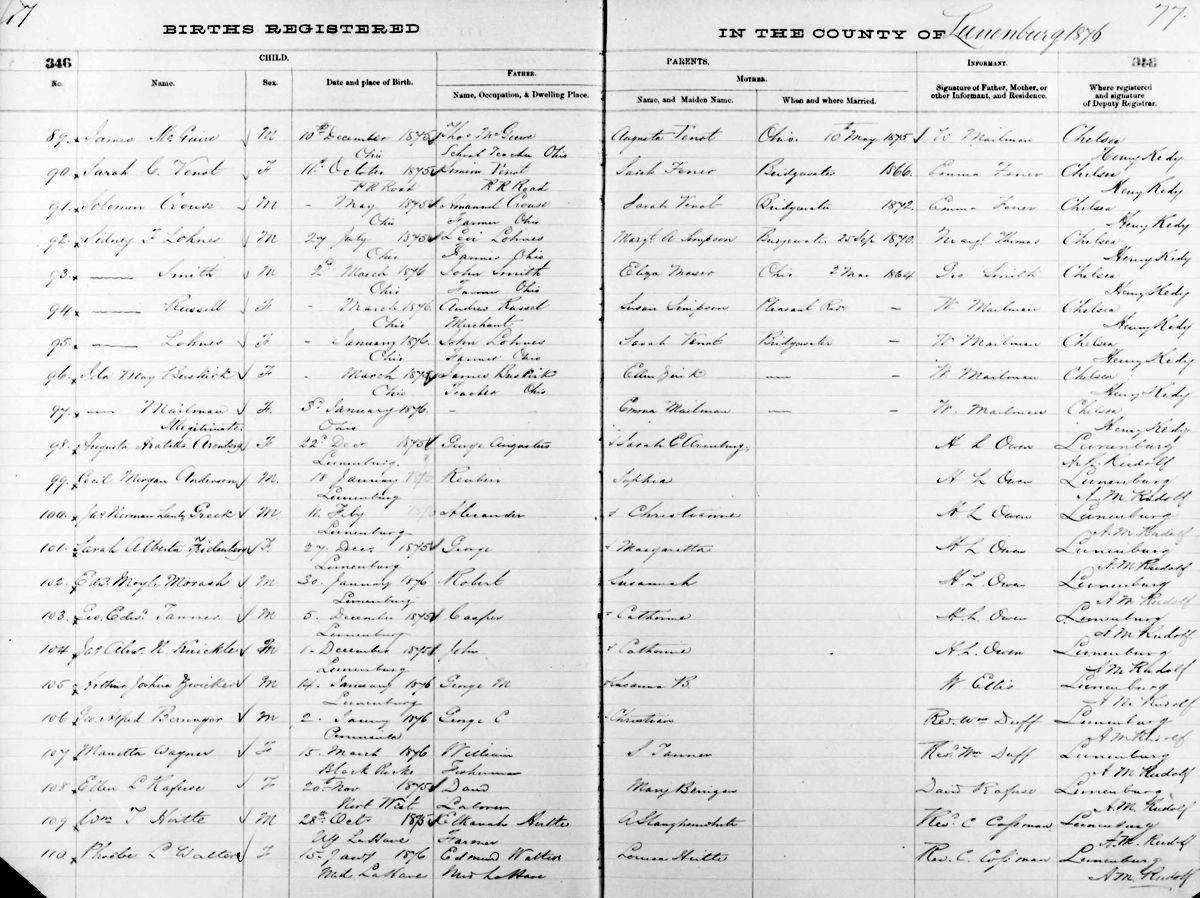 77.
BIRTHS REGISTERED IN THE COUNTY OF Lunenburg 1876
346
CHILD.
PARENTS.
No.
Name.
Sex.
Date and place of Birth.
FATHER.
Name, Occupation, & Dwelling Place.
MOTHER.
Name, and Maiden Name.
When and where Married.
INFORMANT.
Signature of Father, Mother, or other Informant, and Residence.
Where registered and signature of Deputy Registrar.
89. James McGuire M 10th December 1875 Thos McGuire Augusta Venot Ohio 10th May 1875 W Mailman Chelsea
Ohio School Teacher Ohio Henry Kedy
90. Sarah C. Venot F 11th October 1875 Simeon Venot Sarah Fener Bridgewater 1866. Emma Fener Chelsea
RR Road RR Road Henry Kedy
91. Solomon Crouse M - May 1875 Crouse Sarah Venot Bridgewater 1872. Emma Fener Chelsea
Ohio Farmer Ohio Henry Kedy
92. Sidney F Lohnes M 27 July 1875 Levi Lohnes Margt A Simpson 25 Sep 1870. Margt Thomas Chelsea
Ohio Farmer Ohio Henry Kedy
93. — Smith M 2d March 1876 John Smith Eliza Moser Ohio 2 Mar 1864 Geo Smith Chelsea
Ohio Farmer Ohio Henry Kedy
94. — Russell F - March 1876. Andrew Russel Susan Simpson Pleasant Rivr — W Mailman Chelsea
Ohio Merchant Henry Kedy
95. — Lohnes F - January 1876. John Lohnes Sarah Venot Bridgewater — W Mailman Chelsea
Ohio Farmer Ohio Henry Kedy
96. Ida May Buskirk F - March 1875 James Buskirk Ellen — — W Mailman Chelsea
Ohio Teacher Ohio Henry Kedy
97. — Mailman F. 3d January 1876. - Emma Mailman — — W. Mailman Chelsea
Illegitimate Ohio Henry Kedy
98. Augusta Arenburg F 22d Decr 1875 George Augustus & Sarah E Arenburg H L Owen Lunenburg
Lunenburg. A.M. Rudolf
99. Cecil Morgan Anderson M. 18 January Reuben Sophia H L Owen Lunenburg
Lunenburg A M Rudolf
100. Jas Norman Lantz Greek M 11. Feby Alexander & Christianne H L Owen Lunenburg
Lunenburg A M Rudolf
101. Sarah Alberta F. 27. Decr 1875 George & Margaretta H L Owen Lunenburg
Lunenburg A M Rudolf
102. Edwd Moyle Morash M 30. January 1876 Robert Susannah H. L. Owen Lunenburg
Lunenburg A M Rudolf
103. Geo. Edwd Tanner M 5. December 1875 Casper & Catherine H. L. Owen Lunenburg
Lunenburg A M Rudolf
104. Jas Alexr N Knickle M 1. December 1875 John & Catherine H. L. Owen Lunenburg
Lunenburg A M Rudolf
105. Arthur Joshua Zwicker M 14. January 1876 George M Susanna B. W Ellis Lunenburg
Lunenburg A M Rudolf
106. Geo Alfred Berringer M 2. Januy 1876 George C Christian Revd Wm Duff Lunenburg
Peninsula A M Rudolf
107. Manetta Wagner F 15. March 1876 William S Tanner Revd Wm Duff Lunenburg
Black Rocks Fisherman A M Rudolf
108. Ellen L Rafuse F 20th Nov 1875 David Mary David Rafuse Lunenburg
West Laborer A.M. Rudolf
109. Wm T Hirtle M 28th Oct 1875 Elkanah Hirtle A Slaughenwhite Revd C Cossman Lunenburg
LaHave Farmer A.M. Rudolf
110. Phoebe L Walters F 15th Jany 1876 Edmund Walters Louisa Hirtle Rev. C. Cossman Lunenburg
Mid. LaHave Mid LaHave A M. Rudolf